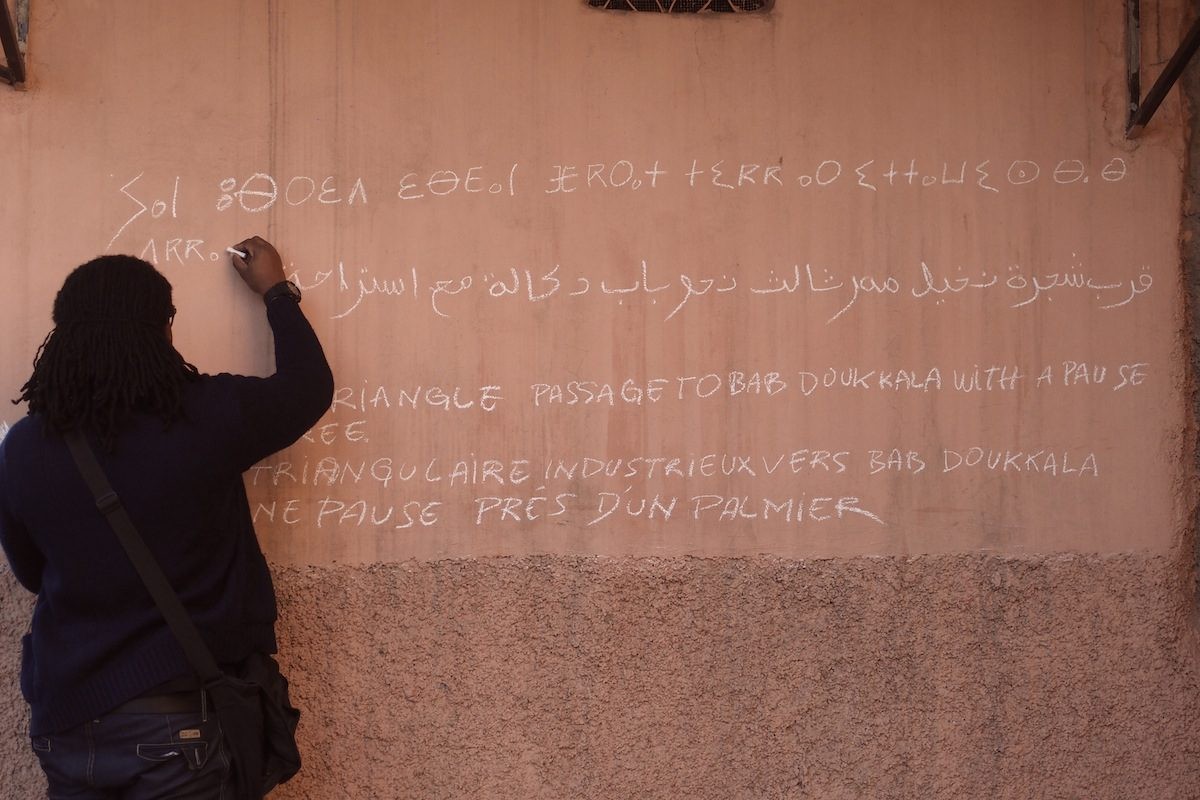 ⵢⴰⵏ ⵓⴱⵔⵉⴷ ⴱ.ⴱ
ⴷⴽⴽⴰ
قرب شجرة نخيل ممر ثالث نحو باب دكالة مع استراحة
RIANGLE PASSAGE TO BAB DOUKKALA WITH A PAUSE
REE.
TRIANGULAIRE INDUSTRIEUX VERS BAB DOUKKALA
NE PAUSE PRÉS D'UN PALMIER